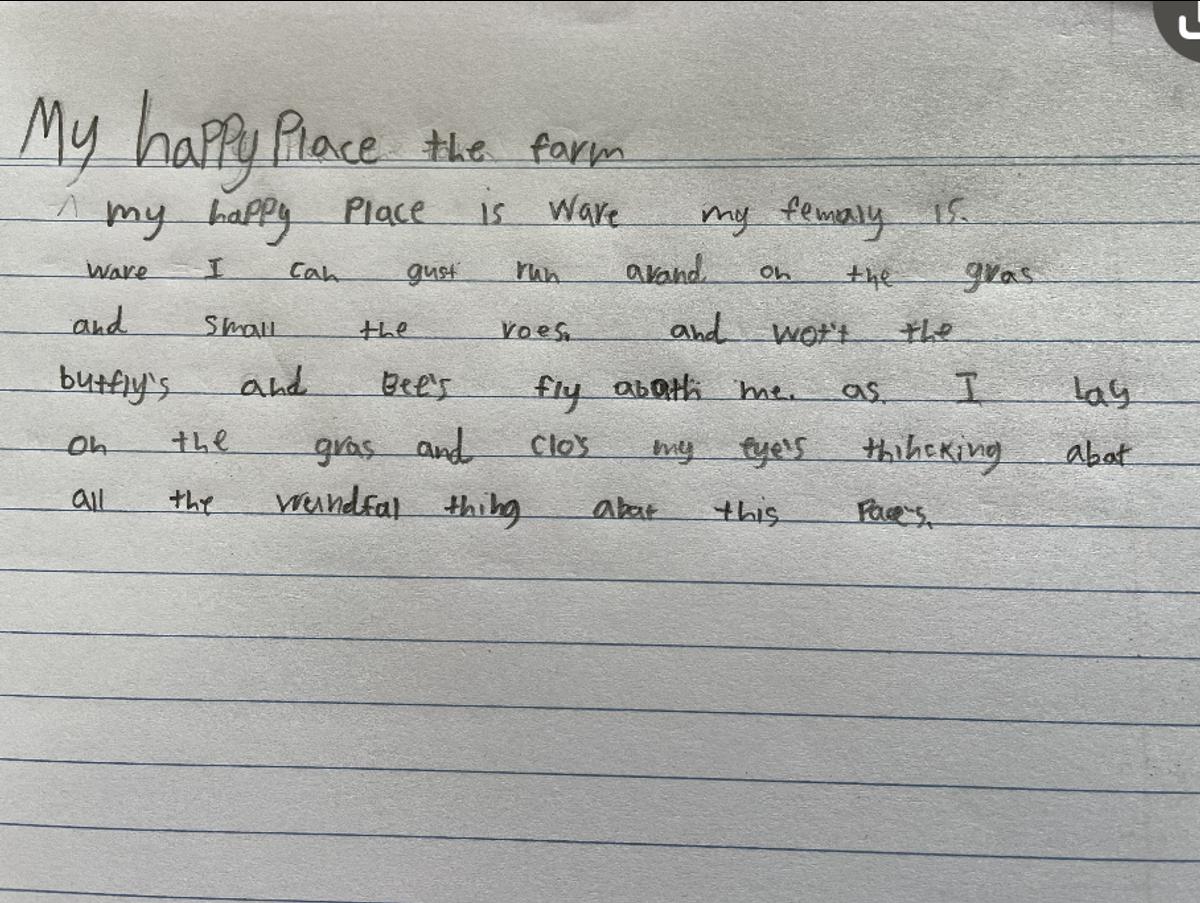 My happy Place the farm
my happy Place is Ware my femaly is.
ware I can gust run arand on the gras
and small the roes. and wot't the
butfly's and Bee's fly me. as I lay
on the gras and clo's my eye's thihcking abat
all the wundfal thing abat this